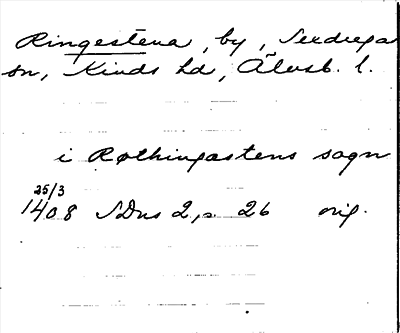 Ringestena, by, Sexdrega
sn, Kinds hd, Älvsb. l.
i Røthingastens sogn
25/3
1408 SDns 2, s. 26 orig.